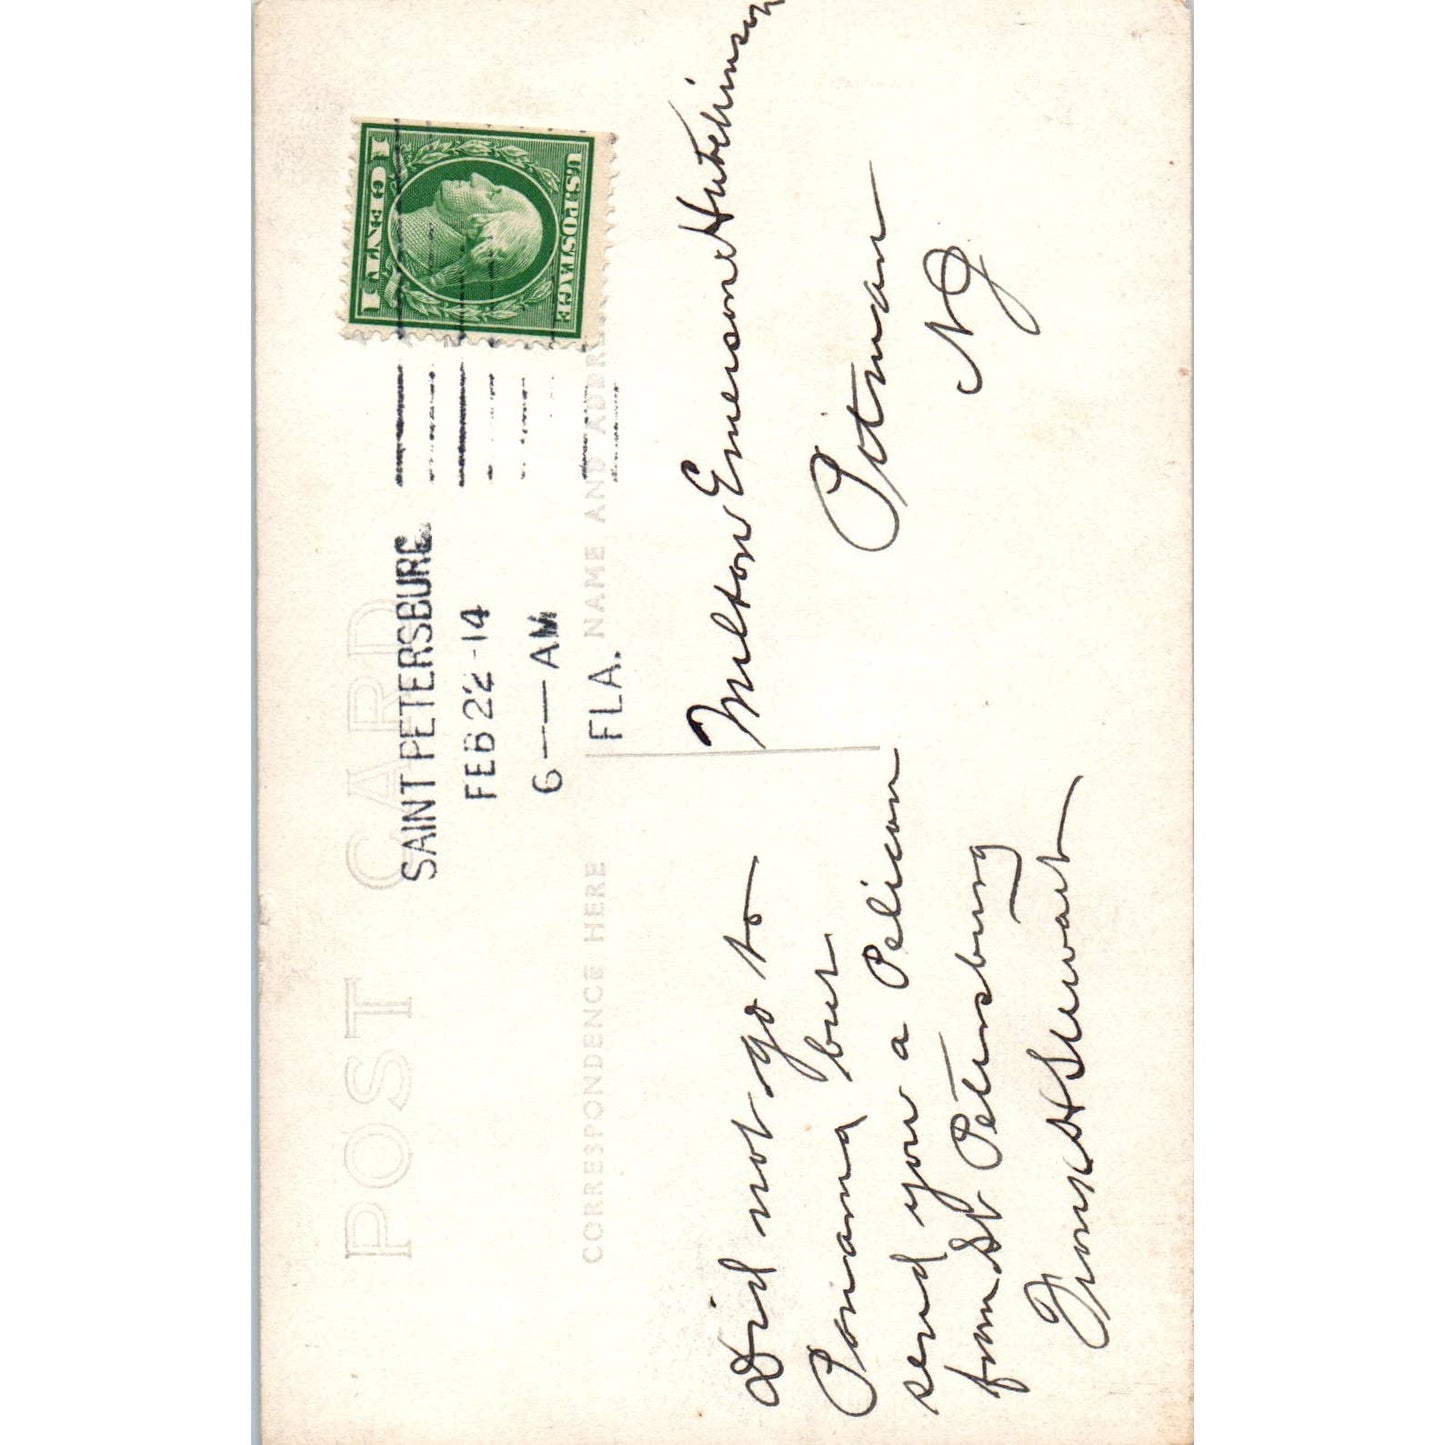 POST CARD
SAINT PETERSBURG
FEB 22 -14
6 — AM
FLA.
U.S. POSTAGE
1 CENT 1
CORRESPONDENCE HERE
NAME AND ADDRE
Did not go to
Panama but
send you a Pelican
from St Petersburg
Frank H Stewart
Milton Emerson Hutchinson
Pitman
NJ